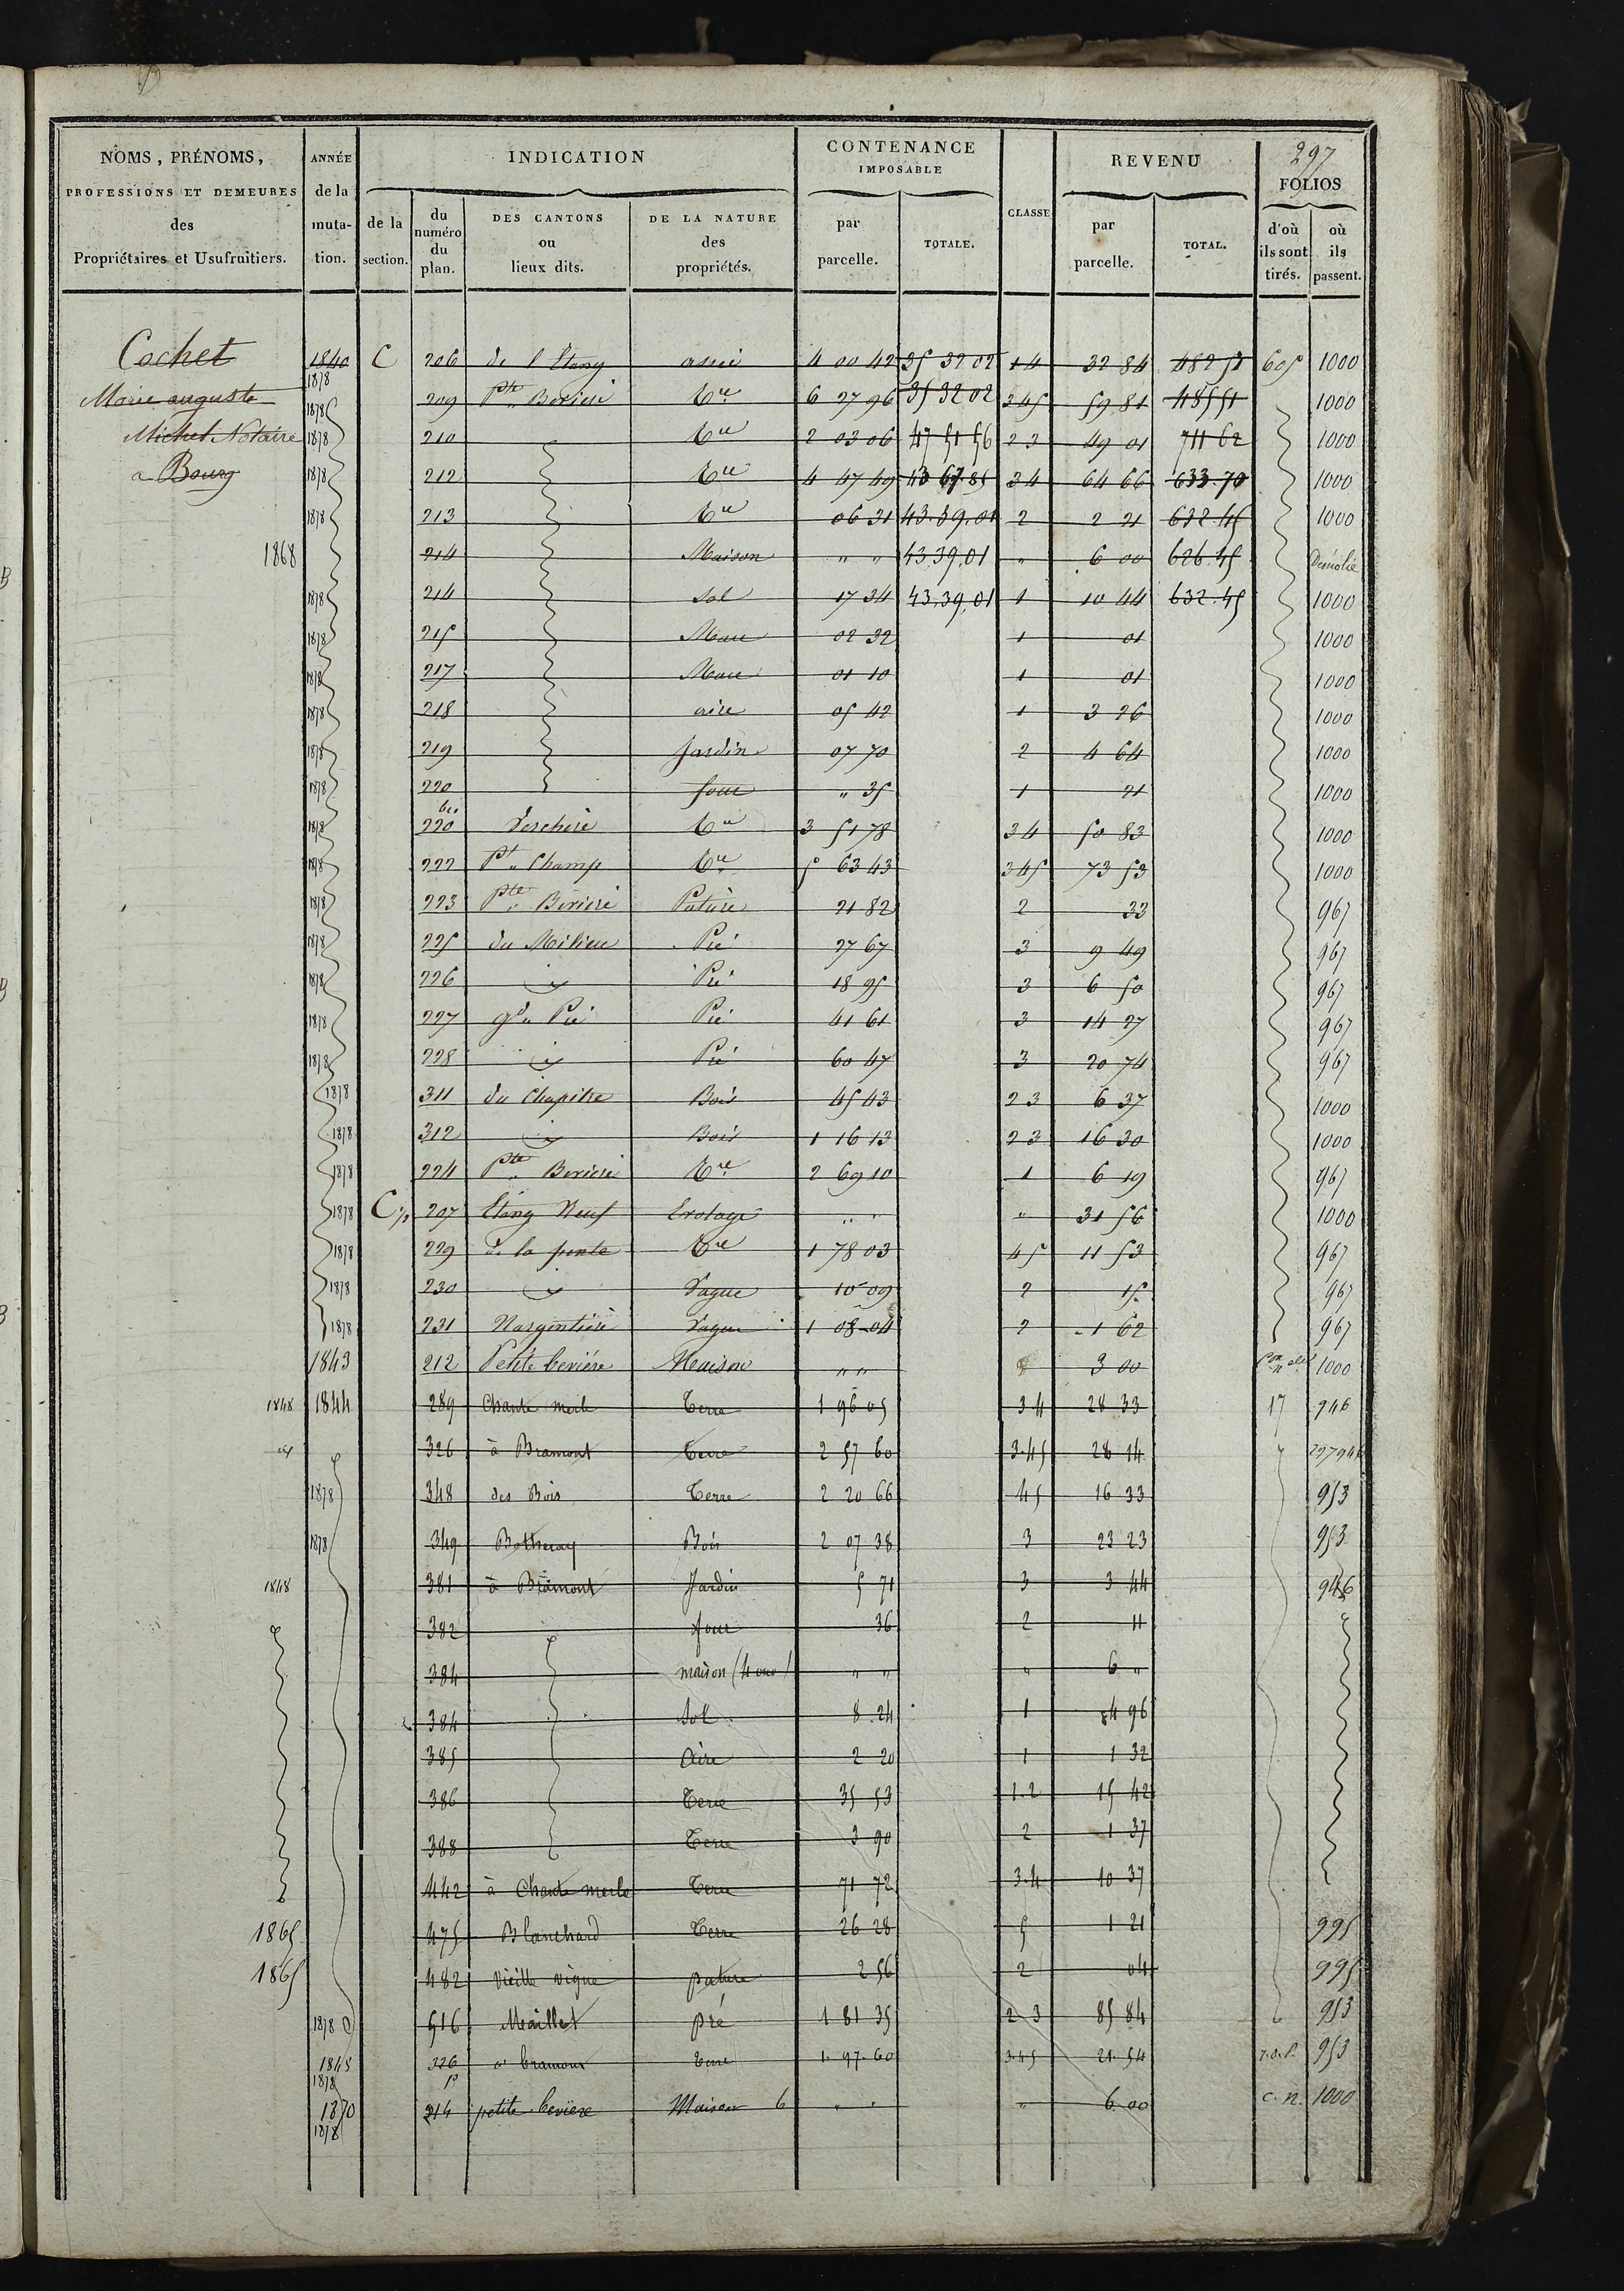 297
NOMS, PRÉNOMS,
PROFESSIONS ET DEMEURES
des
Propriétaires et Usufruitiers.
ANNÉE
de la
muta-
tion.
INDICATION
de la
section.
du
numéro
du
plan.
DES CANTONS
ou
lieux dits.
DE LA NATURE
des
propriétés.
CONTENANCE
IMPOSABLE
par
parcelle.
TOTALE.
CLASSE
REVENU
par
parcelle.
TOTAL.
FOLIOS
d'où
ils sont
tirés.
où
ils
passent.
Cochet
Marie auguste
Michel Notaire
a Bourg
1840 C 206 de l'Étang 4 00 42 35 32 02 14 32 84 482 51 605 1000
1878 209 Pte Beriere tre 6 27 96 35 32 02 345 59 81 485 51 1000
1878 210 tre 2 03 06 47 51 56 23 49 01 711 62 1000
1878 212 tre 4 47 49 43 67.85 34 64 66 633.70 1000
1878 213 tre 06 31 43.39.01 2 2 21 632.45 1000
1868 214 Maison " " 43.39.01 " 6 00 626.45 Démolie
1878 214 Sol 17 34 43.39.01 1 10 44 632.45 1000
1878 215 Mare 02 32 1 01 1000
1878 217 Mare 01 10 1 01 1000
1878 218 aire 05 42 1 3 26 1000
1878 219 Jardin 07 70 2 4 64 1000
1878 220 four " 35 1 21 1000
1878 220 bis tre 3 51 78 34 50 83 1000
1878 222 Pt Champ tre 5 63 43 345 73 53 1000
1878 223 Pte Beriere Pature 21 82 2 33 967
1878 225 du Milieu Pré 27 67 3 9 49 967
1878 226 id Pré 18 95 3 6 50 967
1878 227 gd Pré Pré 41 61 3 14 27 967
1878 228 id Pré 60 47 3 20 74 967
1878 311 du Chapitre Bois 45 43 23 6 37 1000
1878 312 id Bois 1 16 13 23 16 30 1000
1878 224 Pte Beriere tre 2 69 10 1 6 19 967
1878 C 207 Etang Neuf Evolage " " " 31 56 1000
1878 229 de la tre 1 78 03 45 11 53 967
1878 230 id Vague 10 09 2 15 967
1878 231 Vague 1 08 04 2 1 62 967
1843 212 Petite beriére Maison " " 3 00 1000
1848 1844 289 Chante merle Terre 1 96 05 34 28 33 17 946
id 326 à Bramont Terre 2 57 60 3.45 28 14
1878 348 des Bois Terre 2 20 66 45 16 33 953
1878 349 Bois 2 07 38 3 23 23 953
1848 381 à Bramont Jardin 5 71 3 3 44 946
382 four 36 2 11
384 maison (4 ouv) " " " 6 "
384 Sol 8 24 1 4 96
385 Aire 2 20 1 1 32
386 Terre 35 53 1.2 15 42
388 Terre 3 90 2 1 37
442 à Chante merle Terre 71 72 3.4 10 37
1865 475 Blanchard Terre 26 28 5 1 21 995
1865 482 Vieille vigne pature 2 56 2 04 995
1878 516 Maillet pré 1 81 35 2 3 85 84 953
1848 1878 326 p a bramont terre 1.97.60 3.45 21.54 953
1870 1878 214 petite beviere Maison 6 " " " 6.00 c.n. 1000